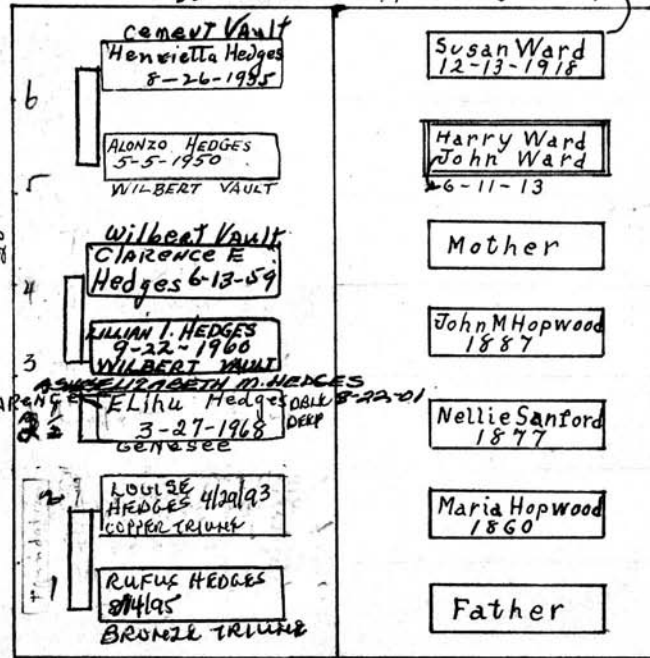 cement Vault
Henrietta Hedges
8-26-1935
6
ALONZO HEDGES
5-5-1950
WILBERT VAULT
5
Wilbert Vault
CLARENCE E
Hedges 6-13-59
4
LILLIAN I. HEDGES
9-22-1960
WILBERT VAULT
3
ELIZABETH M. HEDGES
8-22-01
Elihu Hedges
DBLE
DEEP
3-27-1968
GENESEE
2
LOUISE
HEDGES 4/29/93
COPPER TRIUNE
1
RUFUS HEDGES
8/14/95
BRONZE TRIUNE
Susan Ward
12-13-1918
Harry Ward
John Ward
6-11-13
Mother
John M Hopwood
1887
Nellie Sanford
1877
Maria Hopwood
1860
Father